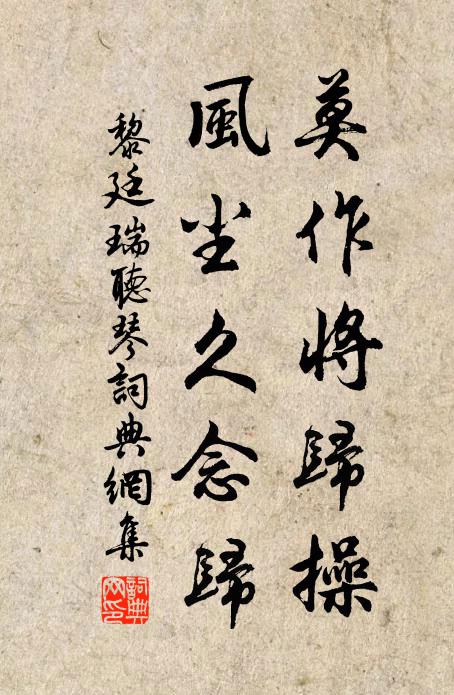 莫作將歸操
風尘久念歸
黎廷瑞聽琴詞典網集
詞典网印